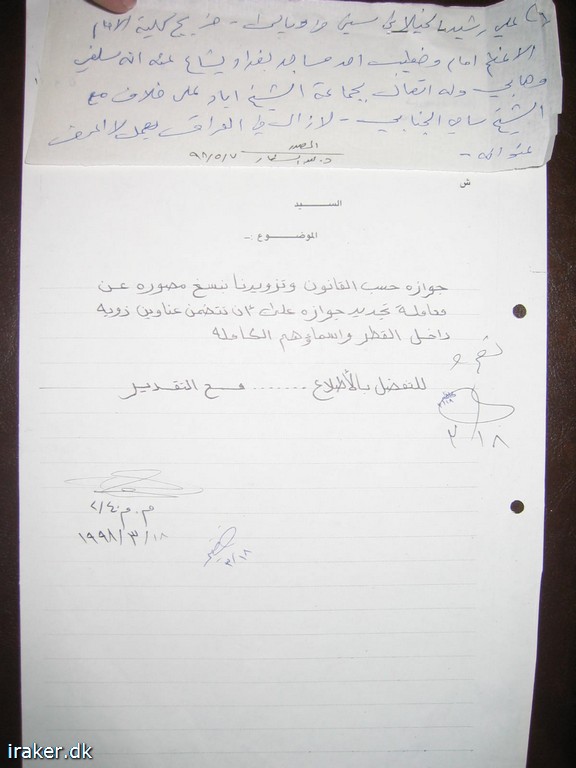 علي رشيد الخيلاني سني - خريج كلية الامام
الاعظم امام وخطيب احد مساجد بغداد يشاع عنه انه سلفي
وهابي وله اتصال بجماعة الشيخ اياد على خلاف مع
الشيخ سامي الجنابي - لازال في العراق يعمل لا اعرف
عنوانه -
المصدر
د. عبد الستار ٩٨/٥/٧
ش
السيد
الموضوع :-
جوازه حسب القانون وتزويدنا نسخ مصوره عن
معاملة تجديد جوازه على ان تتضمن عناوين ذويه
داخل القطر واسماؤهم الكامله
للتفضل بالأطلاع ........ مع التقدير
٣/١٨
م.م. ٤/٢
١٩٩٨/٣/١٨
٣/١٨
iraker.dk